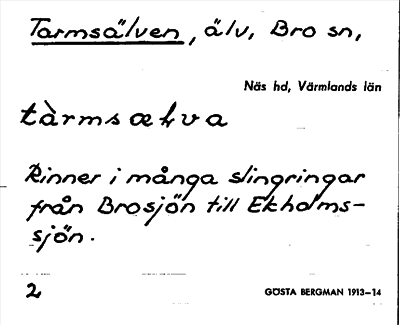 Tarmsälven, älv, Bro sn,
Näs hd, Värmlands län
tàrmsæɫva
Rinner i många slingringar
från Brosjön till Ekholms-
sjön.
2 GÖSTA BERGMAN 1913-14